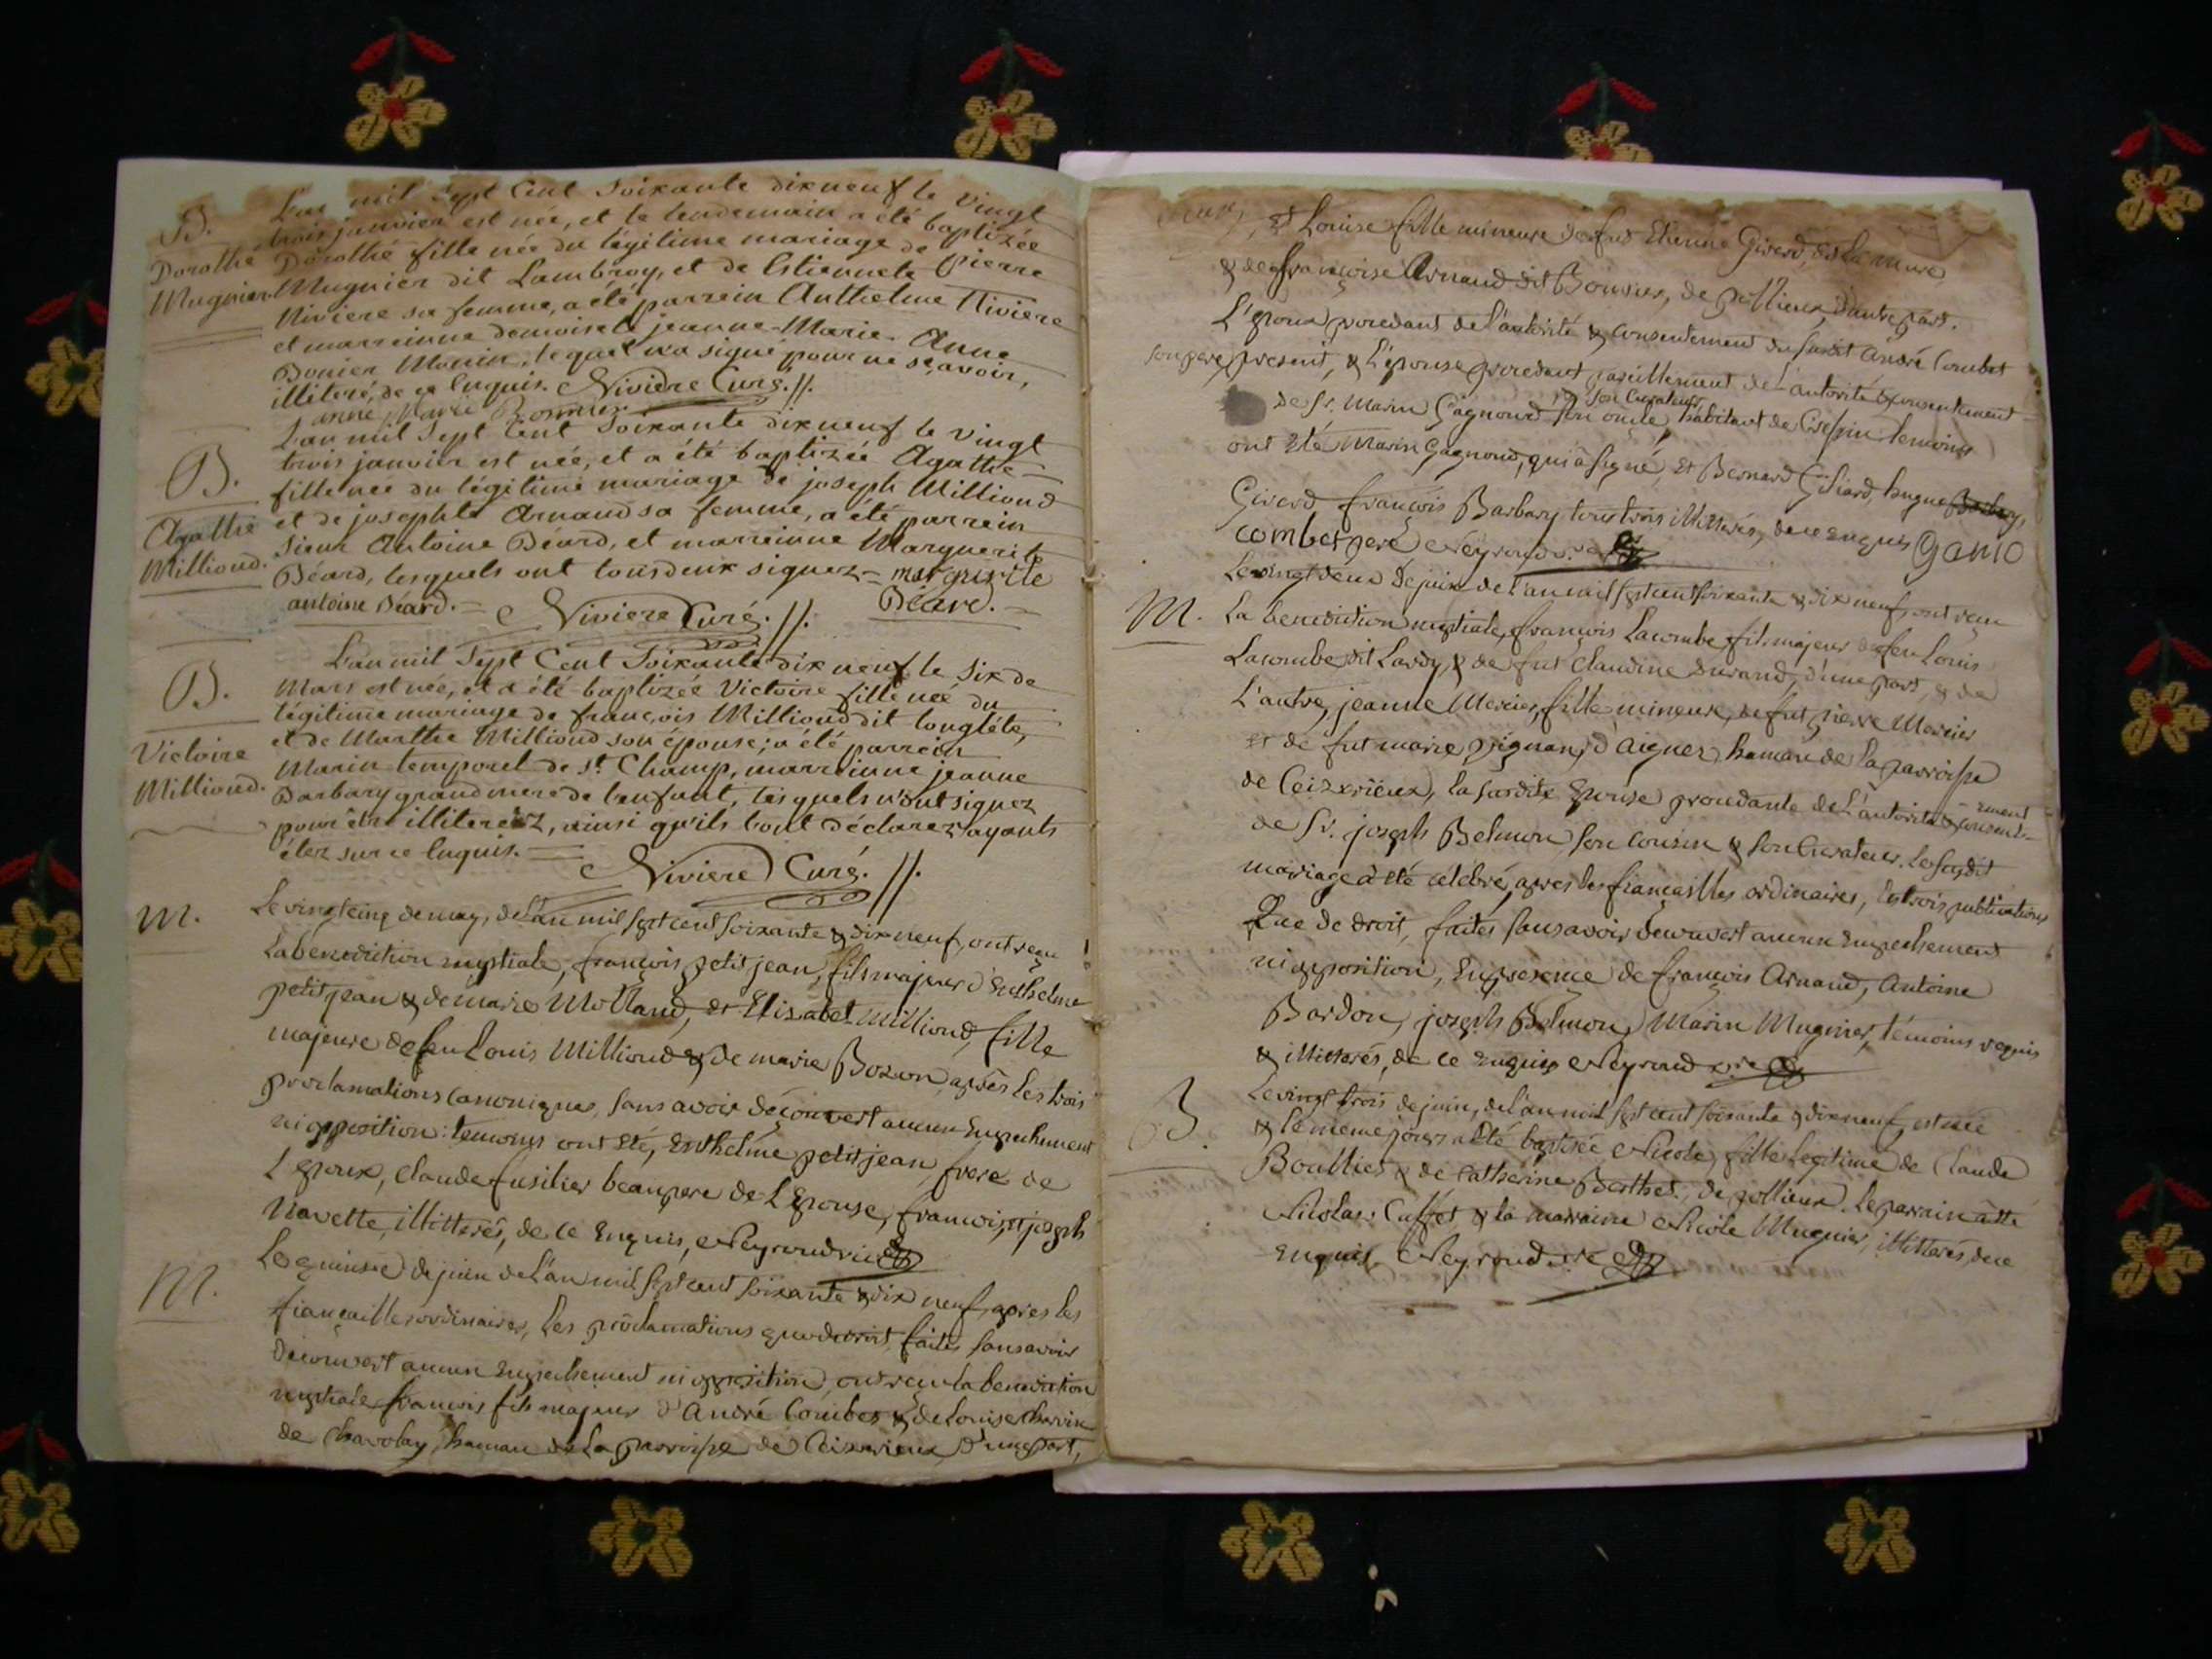 B.
Dorothé
Mugnier
L'an mil Sept Cent Soixante dix neuf le vingt
trois janvier est née, et le lendemain a été baptizée
Dorothé fille née du légitime mariage de Pierre
Mugnier dit Lambroy, et de Estiennete
Riviere sa femme, a été parrein Anthelme Riviere
et marreinne demoiselle jeanne-Marie Anne
Bonier Monin, lequel n'a signé pour ne sçavoir,
illiteré, de ce Enquis. Riviere Curé. //.
anne Marie Bonnier
B.
Agathe
Milliond.
L'an mil Sept Cent Soixante dix neuf le vingt
trois janvier est née, et a été baptizée Agathe
fille née du légitime mariage de joseph Milliond
et de josephte Arnaud sa femme, a été parrein
Sieur Antoine Béard, et marreinne Marguerite
Béard, lesquels ont tous deux signez = marguerite
antoine Béard. = Riviere Curé. //. Béard. =
B.
Victoire
Milliond.
L'an mil Sept Cent Soixante dix neuf le Six de
Mars est née, et a été baptizée Victoire fille née du
légitime mariage de françois Milliond dit longléte,
et de Marthe Milliond son épouse; a été parrein
Marin temporel de st. Champ, marreinne jeanne
Barbary grand mere de l'enfant, lesquels n'ont signez
pour être illiterez, ainsi qu'ils l'ont déclarez ayants
étez sur ce Enquis. = Riviere Curé. //.
M.
Le vingt cinq de may, de l'an mil sept cent soixante & dix neuf, ont recu
La benediction nuptiale, françois petit jean, fils majeur d'Enthelme
petit jean & de marie Molland, et Elizabet milliond, fille
majeure de feu Louis Milliond & de marie Bozon, après les trois
proclamations canoniques, sans avoir découvert aucun Empechement
ni opposition: temoins ont été, Enthelme petit jean, frere de
L'Epoux, Claude fusilier beaupere de L'Epouse, francois, & joseph
Navette, illitterés, de ce Enquis, Neyroud vic
M.
Le quinse de juin de l'an mil sept cent soixante & dix neuf, apres les
fiancailles ordinaires, les proclamations que de droit, faites sans avoir
découvert aucun Empechement ni opposition, ont recu la benediction
nuptiale francois fils majeur d'André Combet & de Louise Charvin
de Chavolay, hamau de La parroisse de Ceizerieux, d'une part,
& Louise fille mineure de fut Etienne Girerd,
& de françoise Arnaud dit Bonnier, de pollieux, d'autre part.
L'époux procedant de l'autorité & consentement du susdit André Combet
son pere, present, & L'épouse procedant pareillement de L'autorité & consentement
& son Curateur
de Sr. Marin Gagnoud son oncle habitant de Cressin temoins
ont Eté Marin Gagnoud, qui a signé, Et Bernard hugue Barbary,
Girerd, françois Barbary, tous trois illitterés, de ce Enquis
combet pere Neyroud
M.
Le vingt deux de juin de l'an mil sept cent soixante & dix neuf, ont recu
La benediction nuptiale, françois Lacombe, fils majeur de feu Louis
Lacombe dit Lardy, & de fut Claudine Durand, d'une part, & de
L'autre, jeanne Mercier, fille mineure, de fut pierre Mercier
et de fut marie d'Aignoz, hamau de la parroisse
de Ceizerieux, la susdite Epouse procedante de L'autorité & consent-
ement
de Sr. joseph Belmon, son cousin & son Curateur. Le susdit
mariage a été célébré, apres les fiancailles ordinaires, les trois publications
Que de droit, faites sans avoir découvert aucun Empechement
ni opposition, En presence de françois Arnaud, Antoine
Bardon, joseph Belmon, Marin Mugnier, témoins requis
& illitterés, de ce Enquis Neyroud
B.
Le vingt trois de juin, de l'an mil sept cent soixante & dix neuf, est née
& le meme jour a été baptisée Nicole, fille Legitime de Claude
Boullier & de Catherine Berthet, de pollieux. Le parrain a été
Nicolas Cuffet & la marraine Nicole Mugnier, illitterés, de ce
Enquis, Neyroud